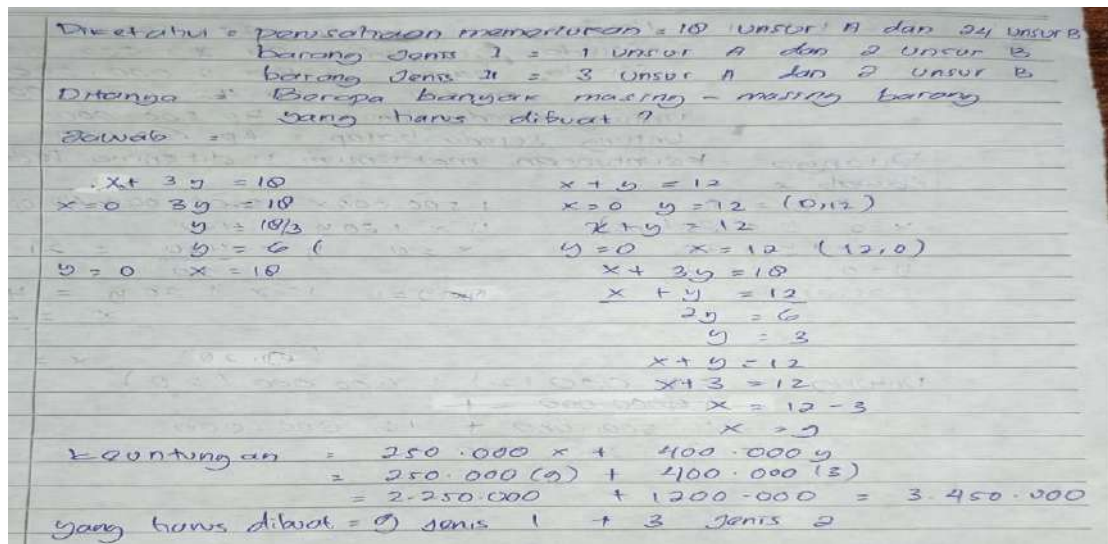 Diketahui = perusahaan memerlukan = 18 unsur A dan 24 unsur B
barang Jenis I = 1 unsur A dan 2 unsur B
barang Jenis II = 3 unsur A dan 2 unsur B
Ditanya = Berapa banyak masing - masing barang
yang harus dibuat ?
Jawab =
x + 3y = 18 x + y = 12
x=0 3y = 18 x=0 y = 12 (0,12)
y = 18/3 x + y = 12
y = 6 ( y=0 x = 12 (12,0)
y = 0 x = 18 x + 3y = 18
x + y = 12
2y = 6
y = 3
x + y = 12
x+3 = 12
x = 12 - 3
x = 9
keuntungan = 250.000 x + 400.000 y
= 250.000 (9) + 400.000 (3)
= 2.250.000 + 1200.000 = 3.450.000
yang harus dibuat = 9 Jenis 1 + 3 Jenis 2